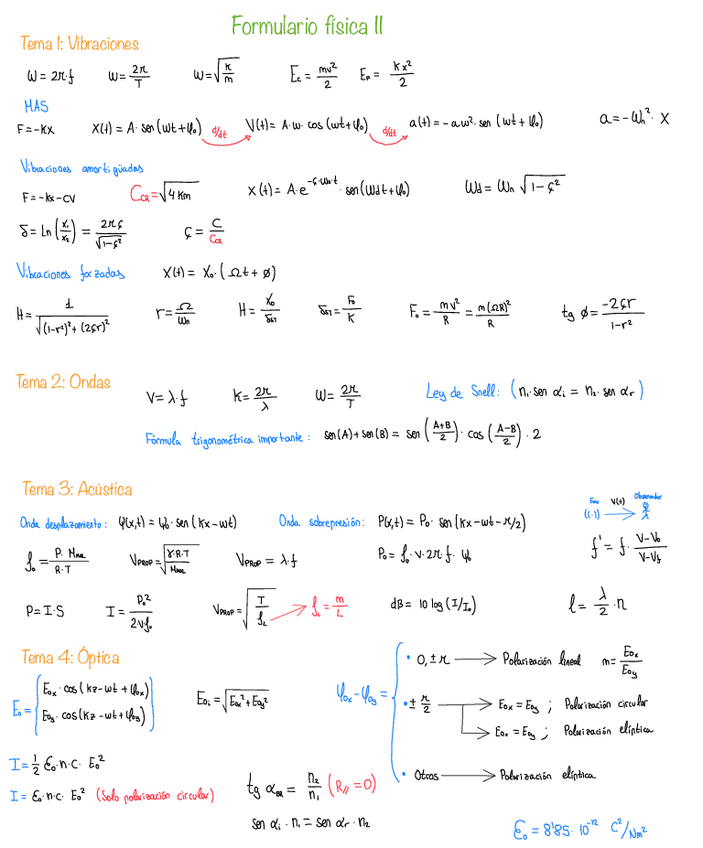 Formulario física II
Tema 1: Vibraciones
ω = 2π·f    ω = 2π/T    ω = √(k/m)    Ec = mv²/2    Ep = Kx²/2
MAS
F = -kx    x(t) = A· sen(ωt + φ₀)    d/dt    V(t) = A·w· cos(ωt + φ₀)    d/dt    a(t) = - aw²· sen (ωt + φ₀)    a = -ωn²· x
Vibraciones amortigüadas
F = -kx - cv    CCR = √(4km)    x(t) = A·e^(-ς·ωn·t)· sen(ωdt + φ₀)    ωd = ωn √(1-ς²)
δ = Ln(x₁/x₂) = 2πς/√(1-ς²)    ς = C/CCR
Vibraciones forzadas    x(t) = X₀·(Ωt + ø)
H = 1/√((1-r²)² + (2ςr)²)    r = Ω/ωn    H = X₀/δST    δST = F₀/K    F₀ = mv²/R = m(ΩR)²/R    tg ø = -2ςr/(1-r²)
Tema 2: Ondas
V = λ·f    K = 2π/λ    ω = 2π/T    Ley de Snell: (n₁·sen αi = n₂·sen αr)
Fórmula trigonométrica importante: sen(A) + sen(B) = sen((A+B)/2)· cos((A-B)/2)· 2
Tema 3: Acústica
Onda desplazamiento: φ(x,t) = φ₀· sen (kx-wt)    Onda sobrepresión: P(x,t) = P₀· sen(kx-wt-π/2)    V(t)    Observador
((·))
ρ₀ = P·Mmol/R·T    VPROP = √(γ·R·T/Mmol)    VPROP = λ·f    P₀ = ρ₀·v·2π·f·φ₀    f' = f· (V-V₀)/(V-Vf)
P = I·S    I = P₀²/2vρ₀    VPROP = √(T/ρL)    ρL = m/L    dB = 10 log (I/I₀)    l = λ/2·n
Tema 4: Óptica
E₀ = { E₀x· cos(kz-wt + φ₀x)
E₀y· cos(kz-wt + φ₀y) }    E₀ = √(E₀x² + E₀y²)
φ₀x - φ₀y =
• 0, ±π → Polarización lineal    m = E₀x/E₀y
• ±π/2 → E₀x = E₀y ; Polarización circular
→ E₀x = E₀y ; Polarización elíptica
• Otros → Polarización elíptica
I = 1/2 ε₀·n·c· E₀²
I = ε₀·n·c· E₀² (Solo polarización circular)
tg αBR = n₂/n₁ (R// = 0)
sen αi · n₁ = sen αr · n₂
ε₀ = 8'85· 10⁻¹² C²/Nm²